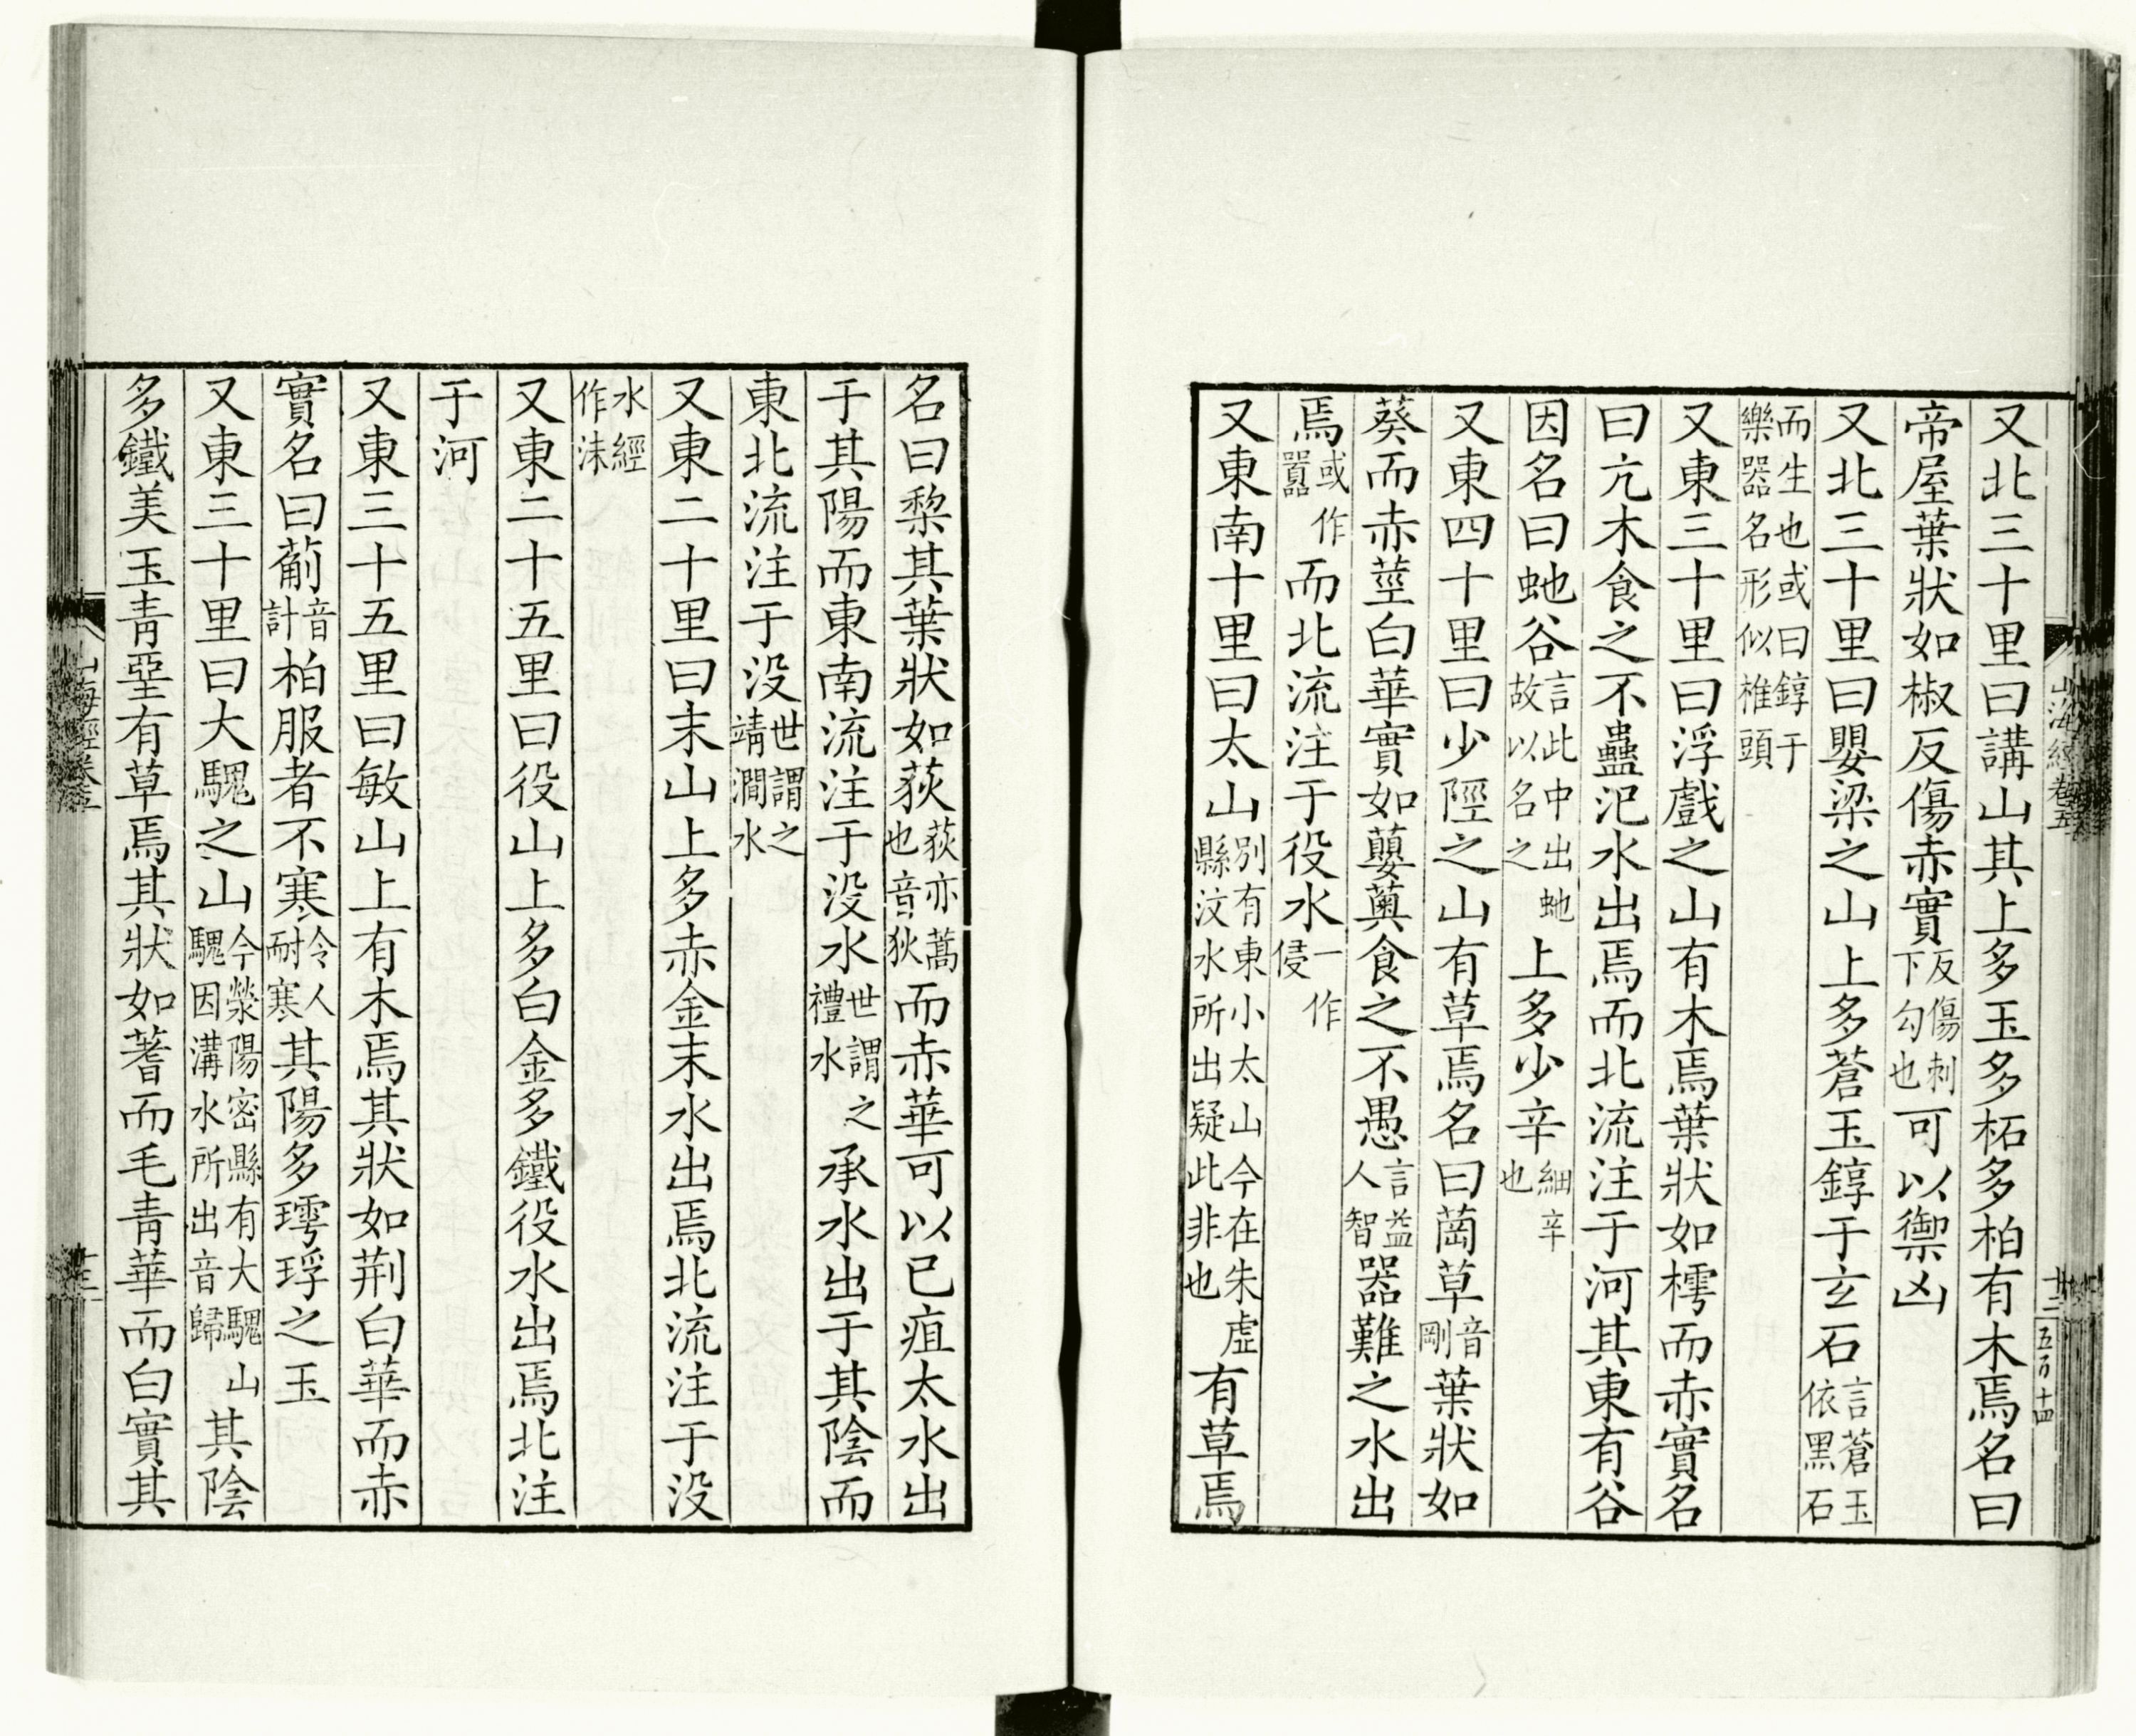 又北三十里曰講山其上多玉多柘多柏有木焉名曰
帝屋葉狀如椒反傷赤實反傷刺下勾也可以禦凶
又北三十里曰嬰梁之山上多蒼玉錞于玄石言蒼玉依黑石
而生也或曰錞于樂器名形似椎頭
又東三十里曰浮戲之山有木焉葉狀如樗而赤實名
曰亢木食之不蠱汜水出焉而北流注于河其東有谷
因名曰虵谷言此中出虵故以名之上多少辛細辛也
又東四十里曰少陘之山有草焉名曰䓘草音剛葉狀如
葵而赤莖白華實如蘡薁食之不愚言益人智器難之水出
焉或作囂而北流注于役水一作侵
又東南十里曰太山別有東小太山今在朱虛縣汶水所出疑此非也有草焉
名曰棃其葉狀如荻荻亦蒿也音狄而赤華可以已疽太水出
于其陽而東南流注于没水世謂之禮水承水出于其陰而
東北流注于没世謂之靖澗水
又東二十里曰末山上多赤金末水出焉北流注于没
水經作沬
又東二十五里曰役山上多白金多鐵役水出焉北注
于河
又東三十五里曰敏山上有木焉其狀如荆白華而赤
實名曰葪音計柏服者不寒令人耐寒其陽多㻬琈之玉
又東三十里曰大騩之山今滎陽密縣有大騩山騩因溝水所出音歸其陰
多鐵美玉青堊有草焉其狀如蓍而毛青華而白實其
山海經卷五
廿二
五百十四